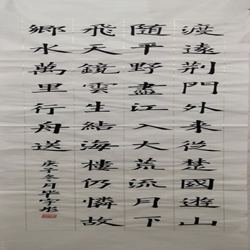 渡遠荆門外来從楚國遊山
随平野盡江入大荒流月下
飛天鏡雲生結海樓仍憐故
鄉水萬里行舟送
庚子冬月